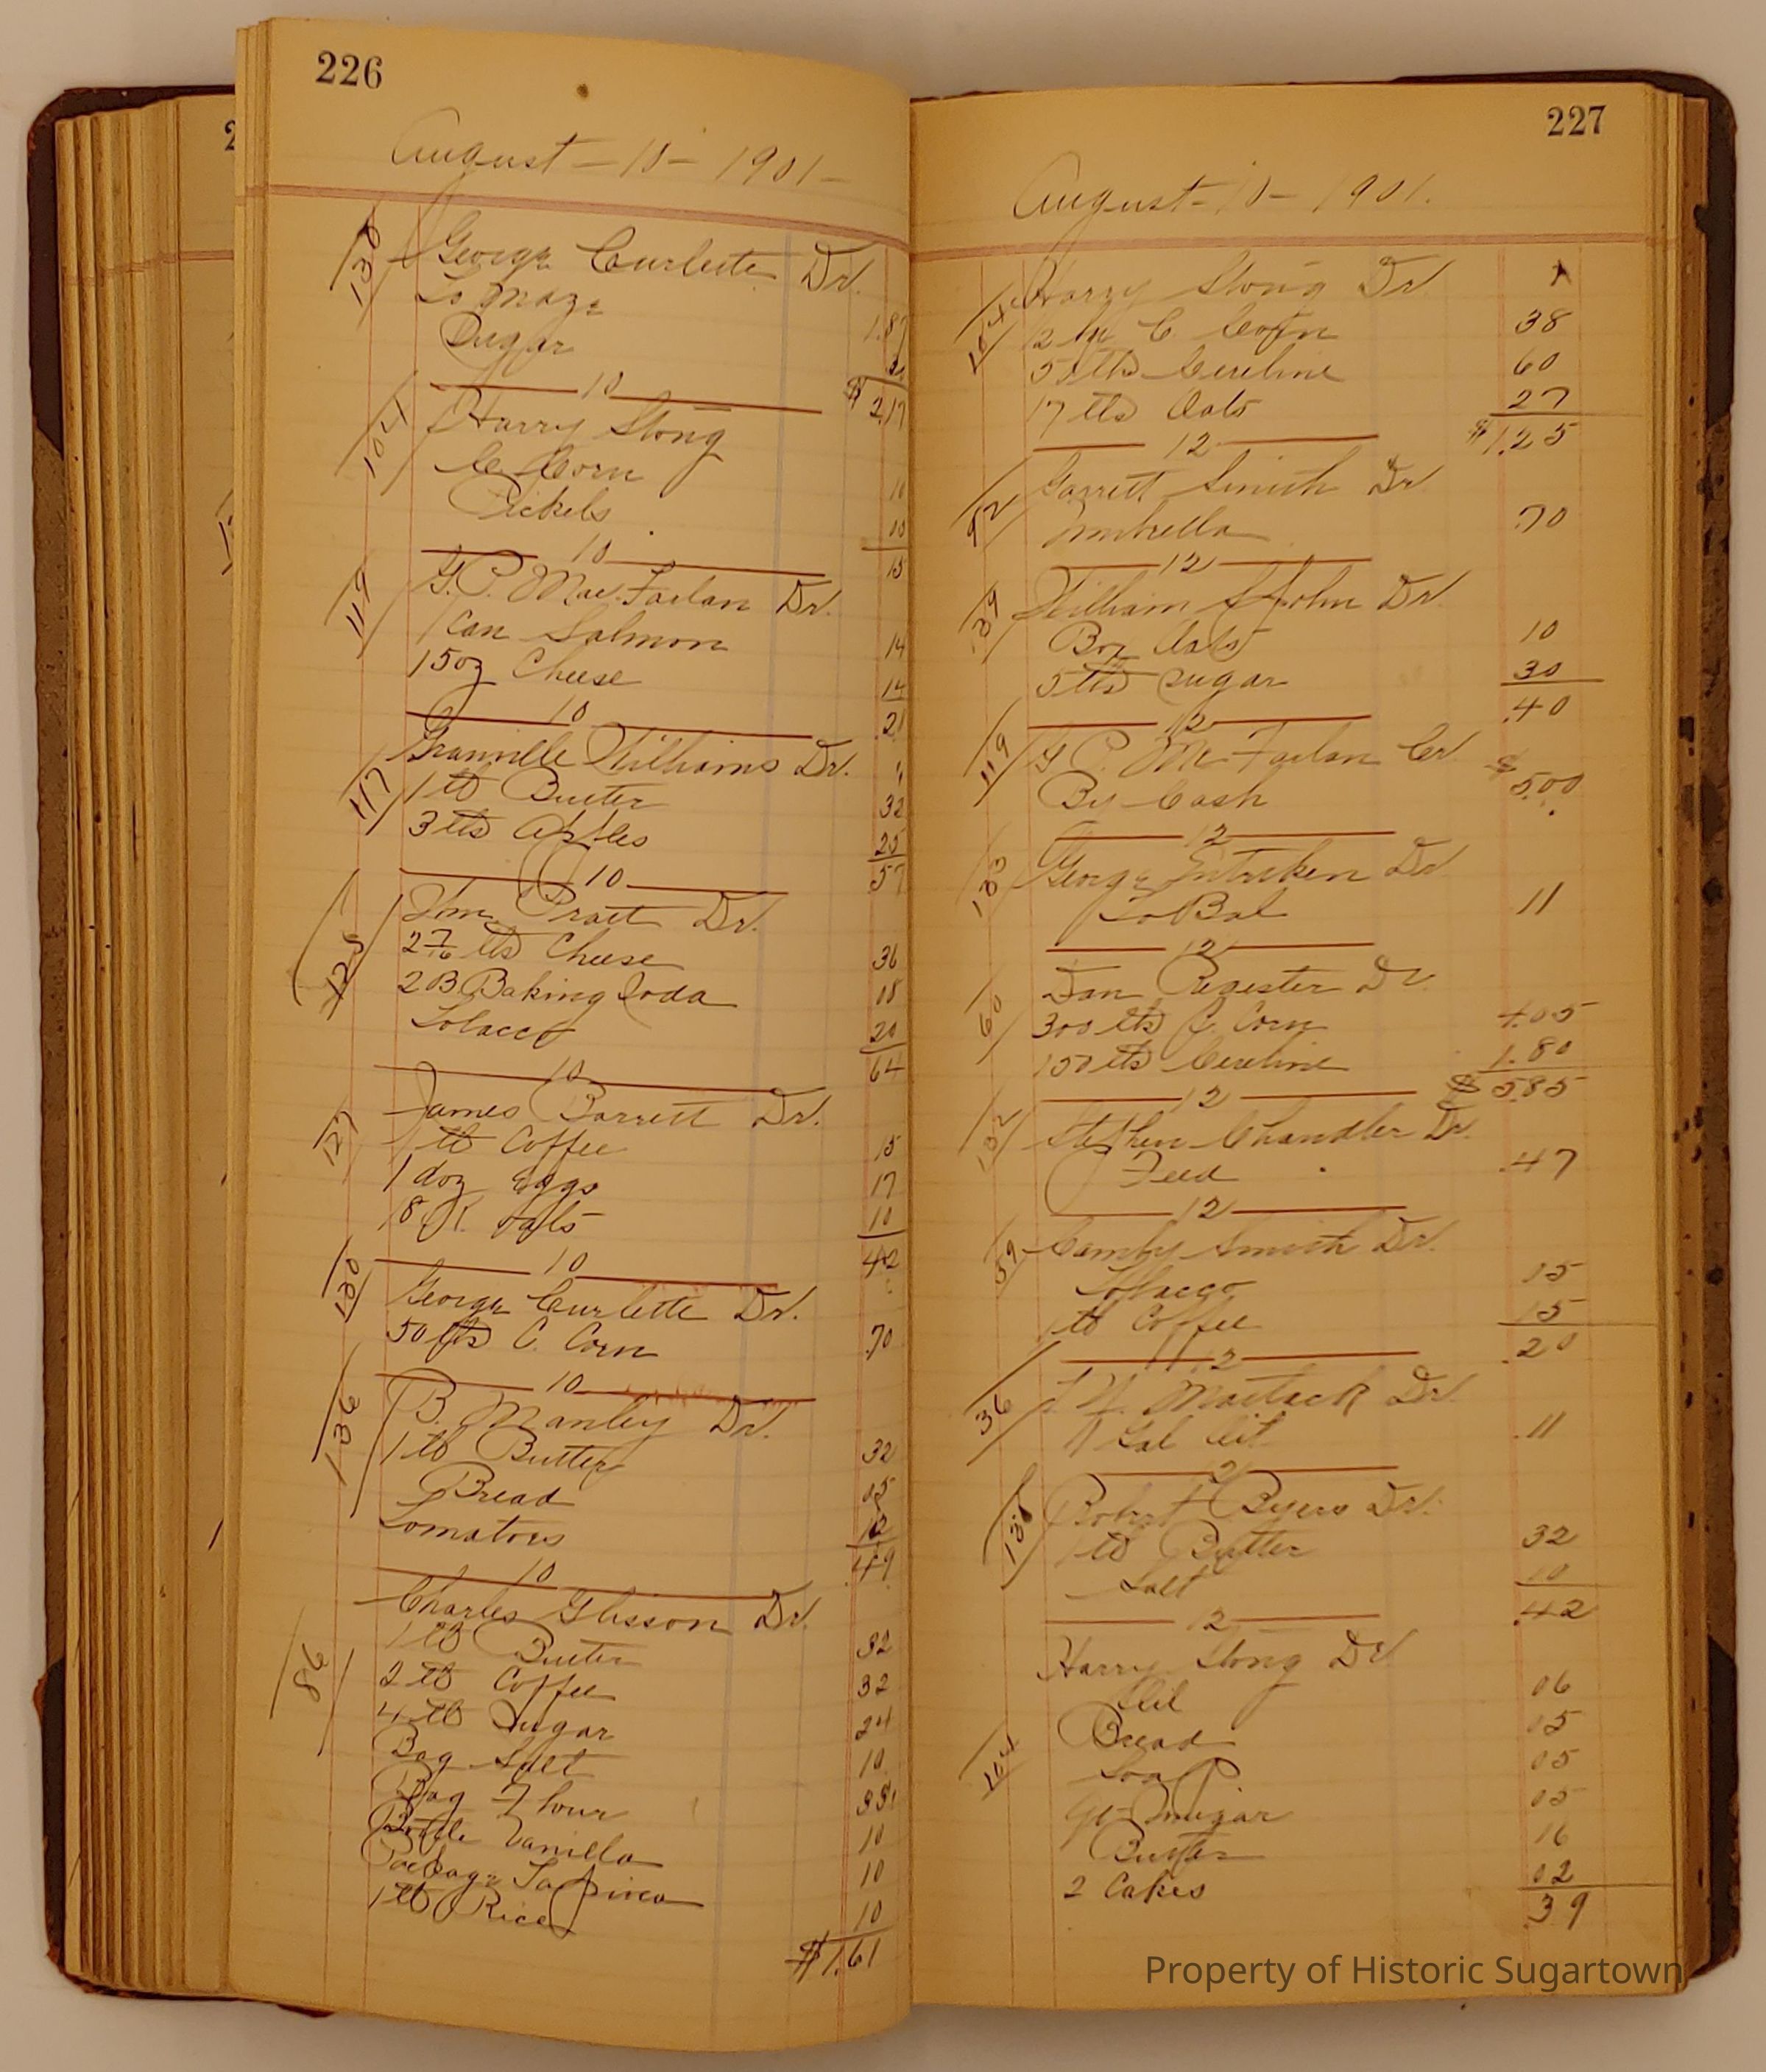 226
August - 10 - 1901 -
130 George Curlette Dr.
To Maze 1.87
Sugar 30
$ 2.17
10
104 Harry Stong
C. Corn 10
Pickels 10
15
10
119 G. P. Mac Farlan Dr.
1 Can Salmon 14
15 oz Cheese 14
21
10
117 Granville Williams Dr.
1 lb Butter 32
3 lbs Apples 25
57
10
125 Wm Pratt Dr.
2 lbs Cheese 36
2 B Baking Soda 18
Tobacco 20
64
10
127 James Barrett Dr.
1 lb Coffee 15
1 doz Eggs 17
Oats 10
42
10
130 George Curlette Dr.
50 lbs C. Corn .70
10
136 B. Manley Dr.
1 lb Butter 32
Bread 05
Tomatoes 12
.49
10
86 Charles Glisson Dr.
1 lb Butter 32
2 lb Coffee 32
4 lb Sugar 24
Bag Salt 10
Bag Flour 33
Bottle Vanilla 10
Package Tapioca 10
1 lb Rice 10
$1.61
227
August - 10 - 1901.
104 Harry Stong Dr
C Corn 38
5 lbs Cereline 60
17 lbs Oats 27
$1.25
12
92 Garrett Smith Dr
Umbrella .70
12
139 William St John Dr.
Box Oats 10
5 lbs Sugar 30
.40
12
119 G P. Mc Farlan Cr
By Cash $5.00
12
133 George Entriken Dr
To Bal 11
12
60 Dan Regester Dr.
300 lbs C. Corn 4.05
150 lbs Cereline 1.80
$ 5.85
12
132 Stephen Chandler Dr.
Feed .47
12
59 Camby Smith Dr.
Tobacco 15
1 lb Coffee 15
.20
12
36 Matlack Dr.
1 Gal Oil .11
12
131 Robert Byers Dr.
1 lb Butter 32
Salt 10
.42
12
Harry Stong Dr
Oil 06
Bread 05
104 Soap 05
Qt Vinegar 05
Butter 16
2 Cakes 02
.39
Property of Historic Sugartown